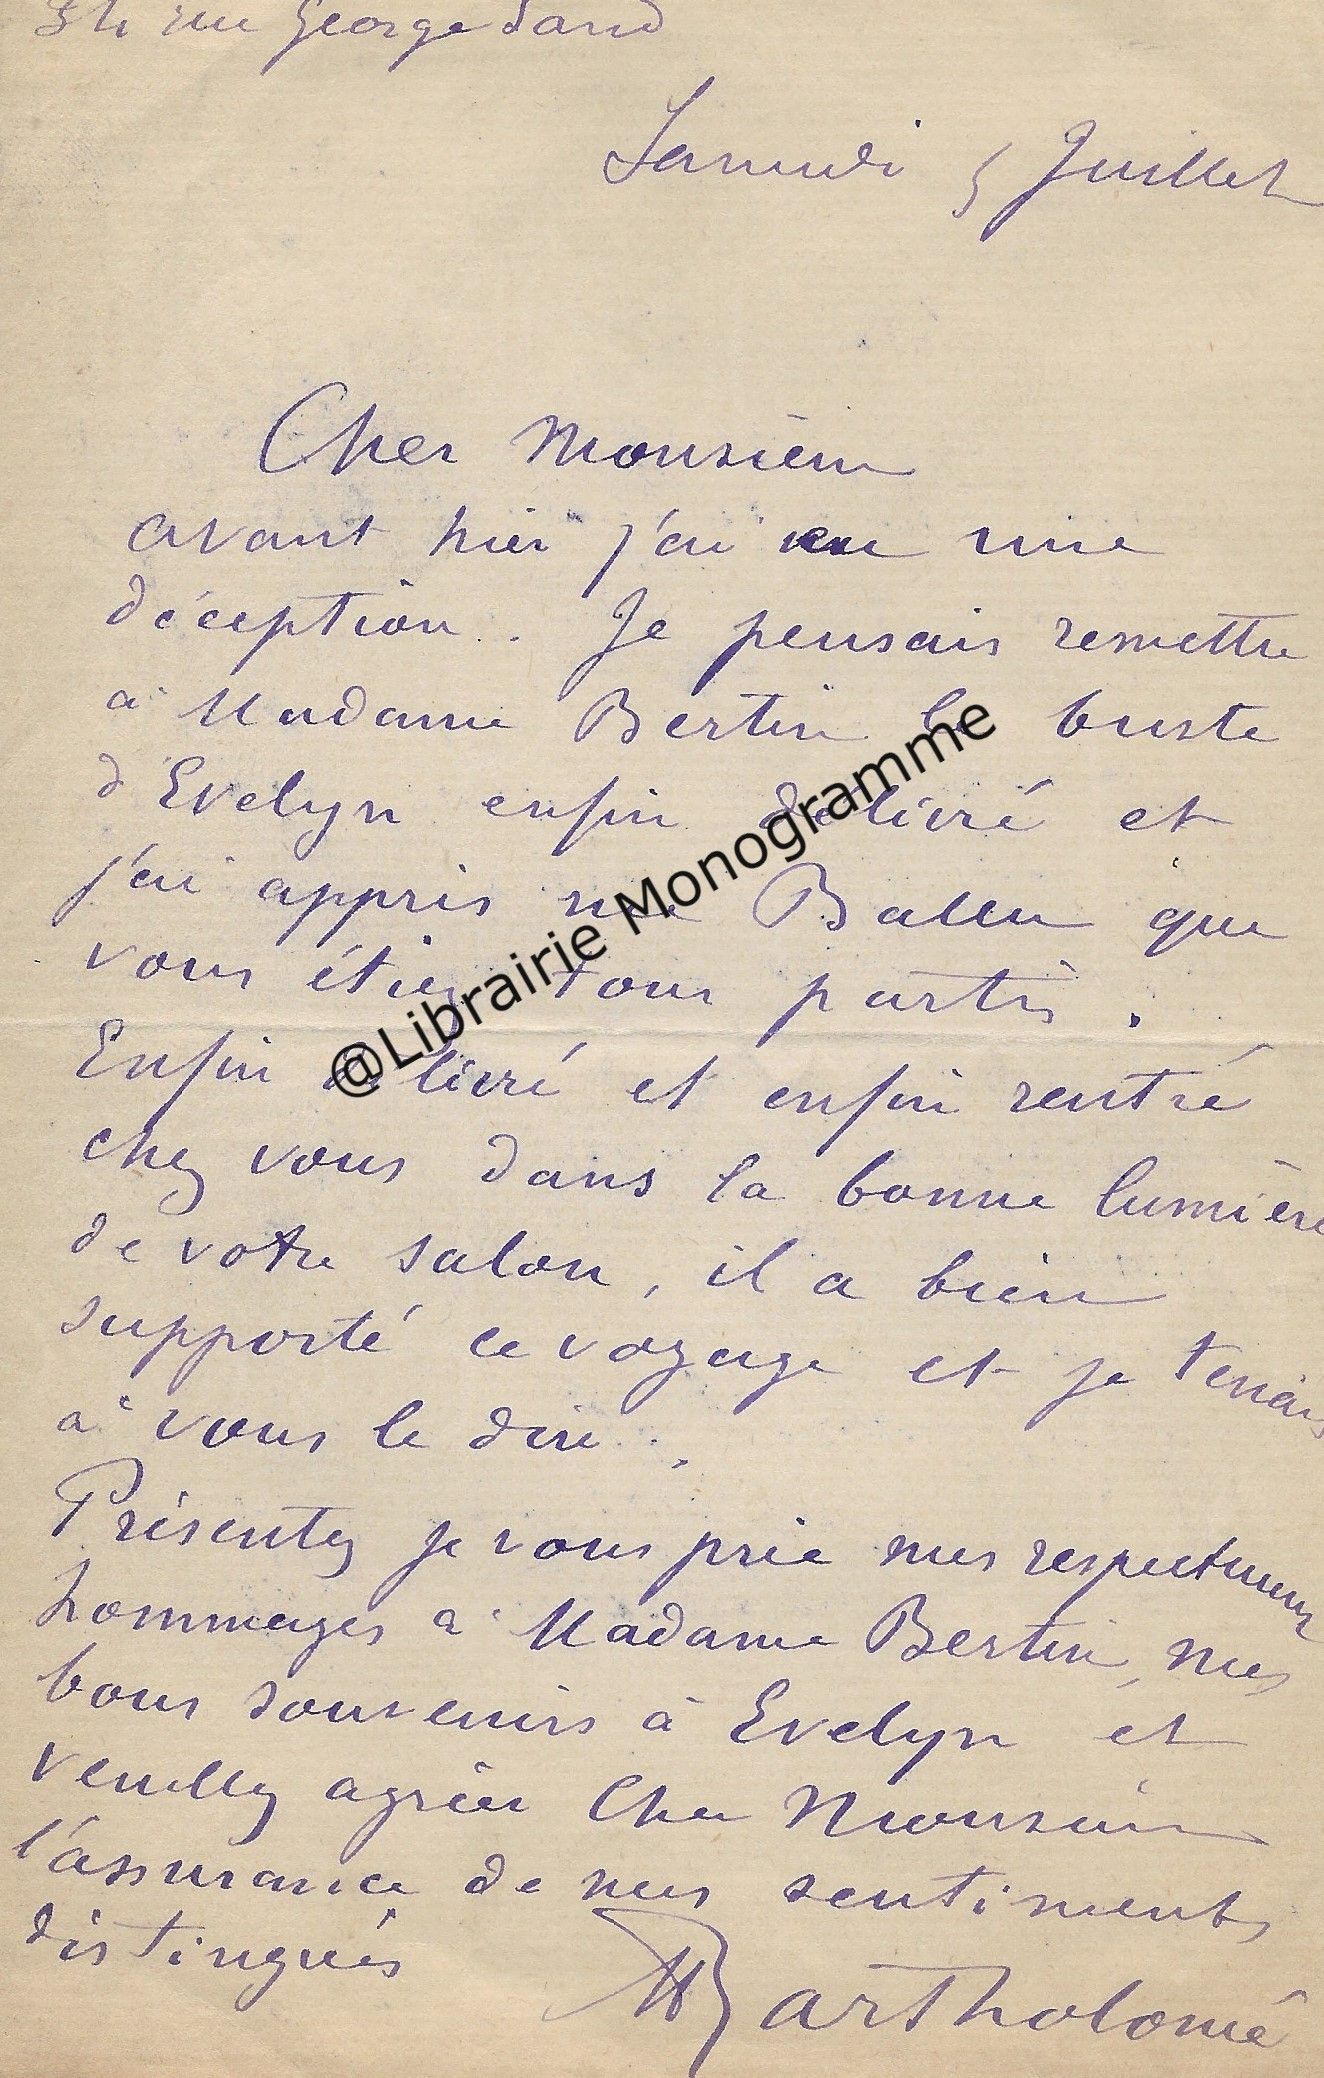 rue George Sand
Samedi 5 Juillet
Cher Monsieur
avant hier j'ai eu une
déception. Je pensais remettre
à Madame Bertin le buste
d'Evelyn enfin délivré et
j'ai appris rue Ballu que
vous étiez tous partis.
Enfin délivré et enfin rentré
chez vous dans la bonne lumière
de votre salon, il a bien
supporté ce voyage et je tenais
à vous le dire.
Présentez je vous prie mes respectueux
hommages à Madame Bertin, mes
bons souvenirs à Evelyn et
veuillez agréer Cher Monsieur
l'assurance de mes sentiments
distingués
Bartholomé
@Librairie Monogramme